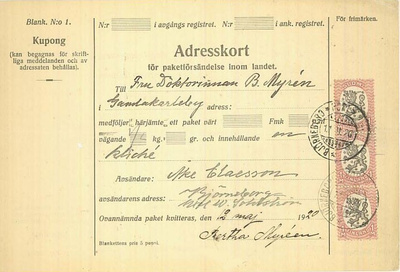 Blank. N:o 1.
Kupong
(kan begagnas för skrift-
liga meddelanden och av
adressaten behållas).
N:r i avgångs registret. N:r i ank. registret.
För frimärken.
Adresskort
för paketförsändelse inom landet.
Till Fru Doktorinnan B. Myrén
Gamlakarleby adress:
medföljer härjämte ett paket värt Fmk
vägande kg. gr. och innehållande en
kliché
Avsändare: Åke Claesson
avsändarens adress: Björneborg
Ovannämnda paket kvitteras, den 2 maj 1920
Bertha Myréen
Blankettens pris 5 penni.